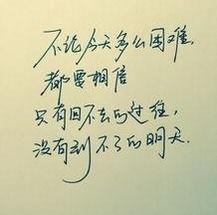 不论今天多么困难，
都要相信
只有回不去的过往，
没有到不了的明天．